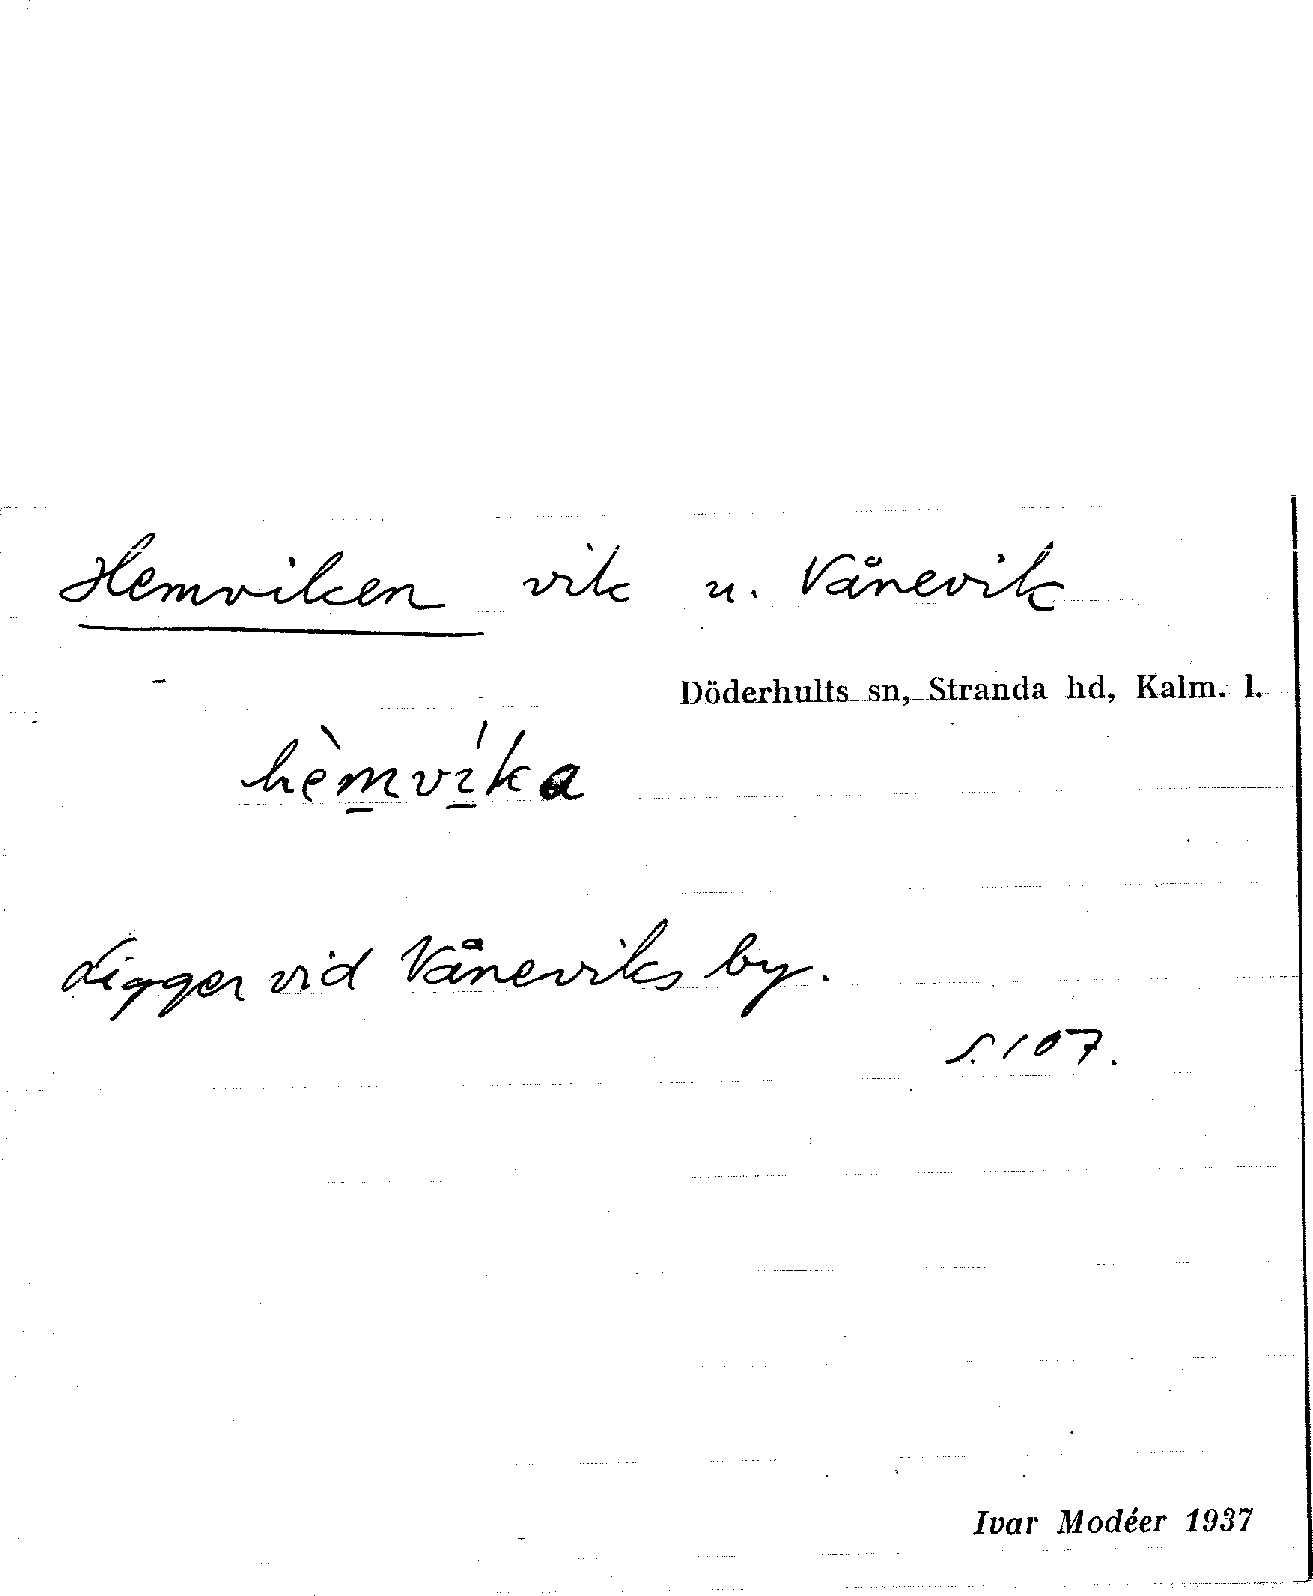 Hemviken vik u. Vånevik
Döderhults sn, Stranda hd, Kalm. l.
hèmvíka
Ligger vid Våneviks by.
S. 107.
Ivar Modéer 1937